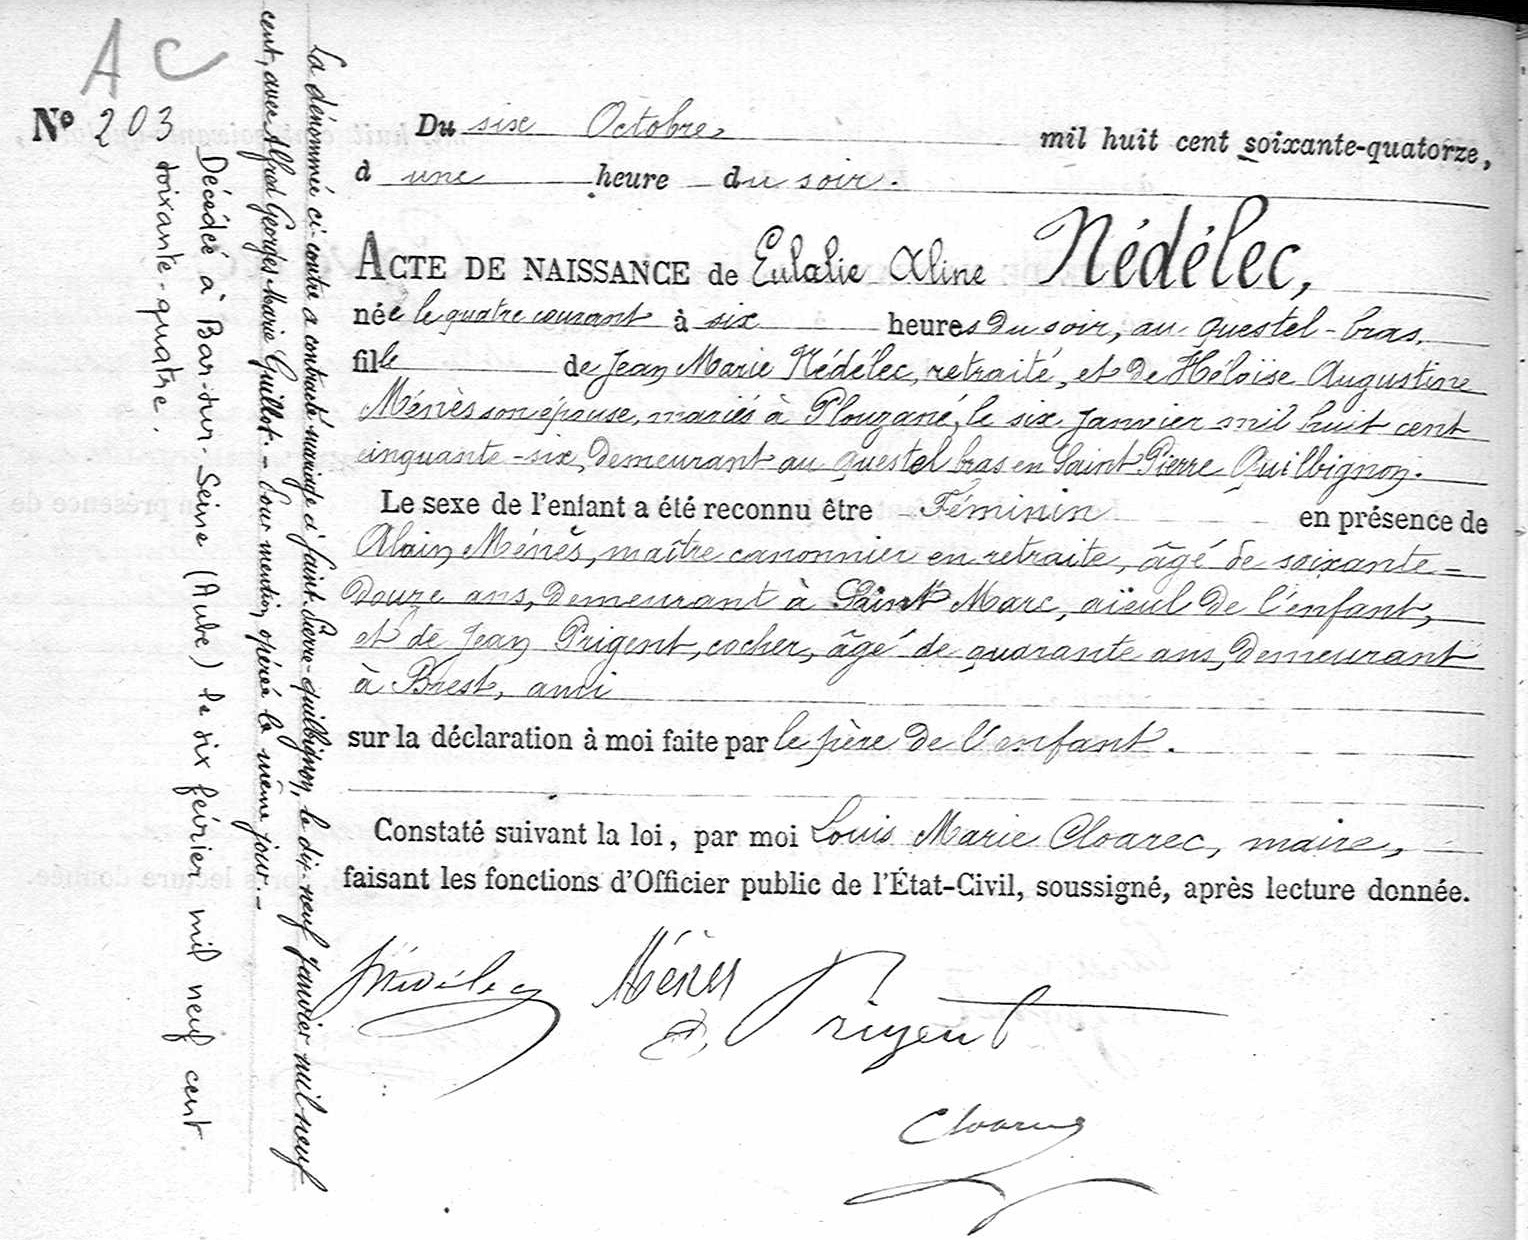 AC
Nº 203
La dénommée ci-contre a contracté mariage à Saint-Pierre-quilbignon, le dix neuf Janvier mil neuf
cent, avec Alfred Georges Marie Guillot. - Pour mention, opérée le même jour. -
Décédée à Bar-sur-Seine (Aube) le six février mil neuf cent
soixante-quatre.
Du six Octobre, mil huit cent soixante-quatorze,
à une heure du soir.
ACTE DE NAISSANCE de Eulalie Aline Nédélec,
née le quatre courant à six heures du soir, au questel-bras.
fille de Jean Marie Nédélec, retraité, et de Héloïse Augustine
Ménès son épouse, mariés à Plouzané, le six Janvier mil huit cent
cinquante-six, demeurant au questel bras en Saint Pierre Quilbignon.
Le sexe de l'enfant a été reconnu être Féminin en présence de
Alain Ménès, maître canonnier en retraite, âgé de soixante-
douze ans, demeurant à Saint Marc, aïeul de l'enfant,
et de Jean Prigent, cocher, âgé de quarante ans, demeurant
à Brest, ami
sur la déclaration à moi faite par le père de l'enfant.
Constaté suivant la loi, par moi Louis Marie Cloarec, maire,
faisant les fonctions d'Officier public de l'État-Civil, soussigné, après lecture donnée.
Nédélec Ménès Prigent
Cloarec